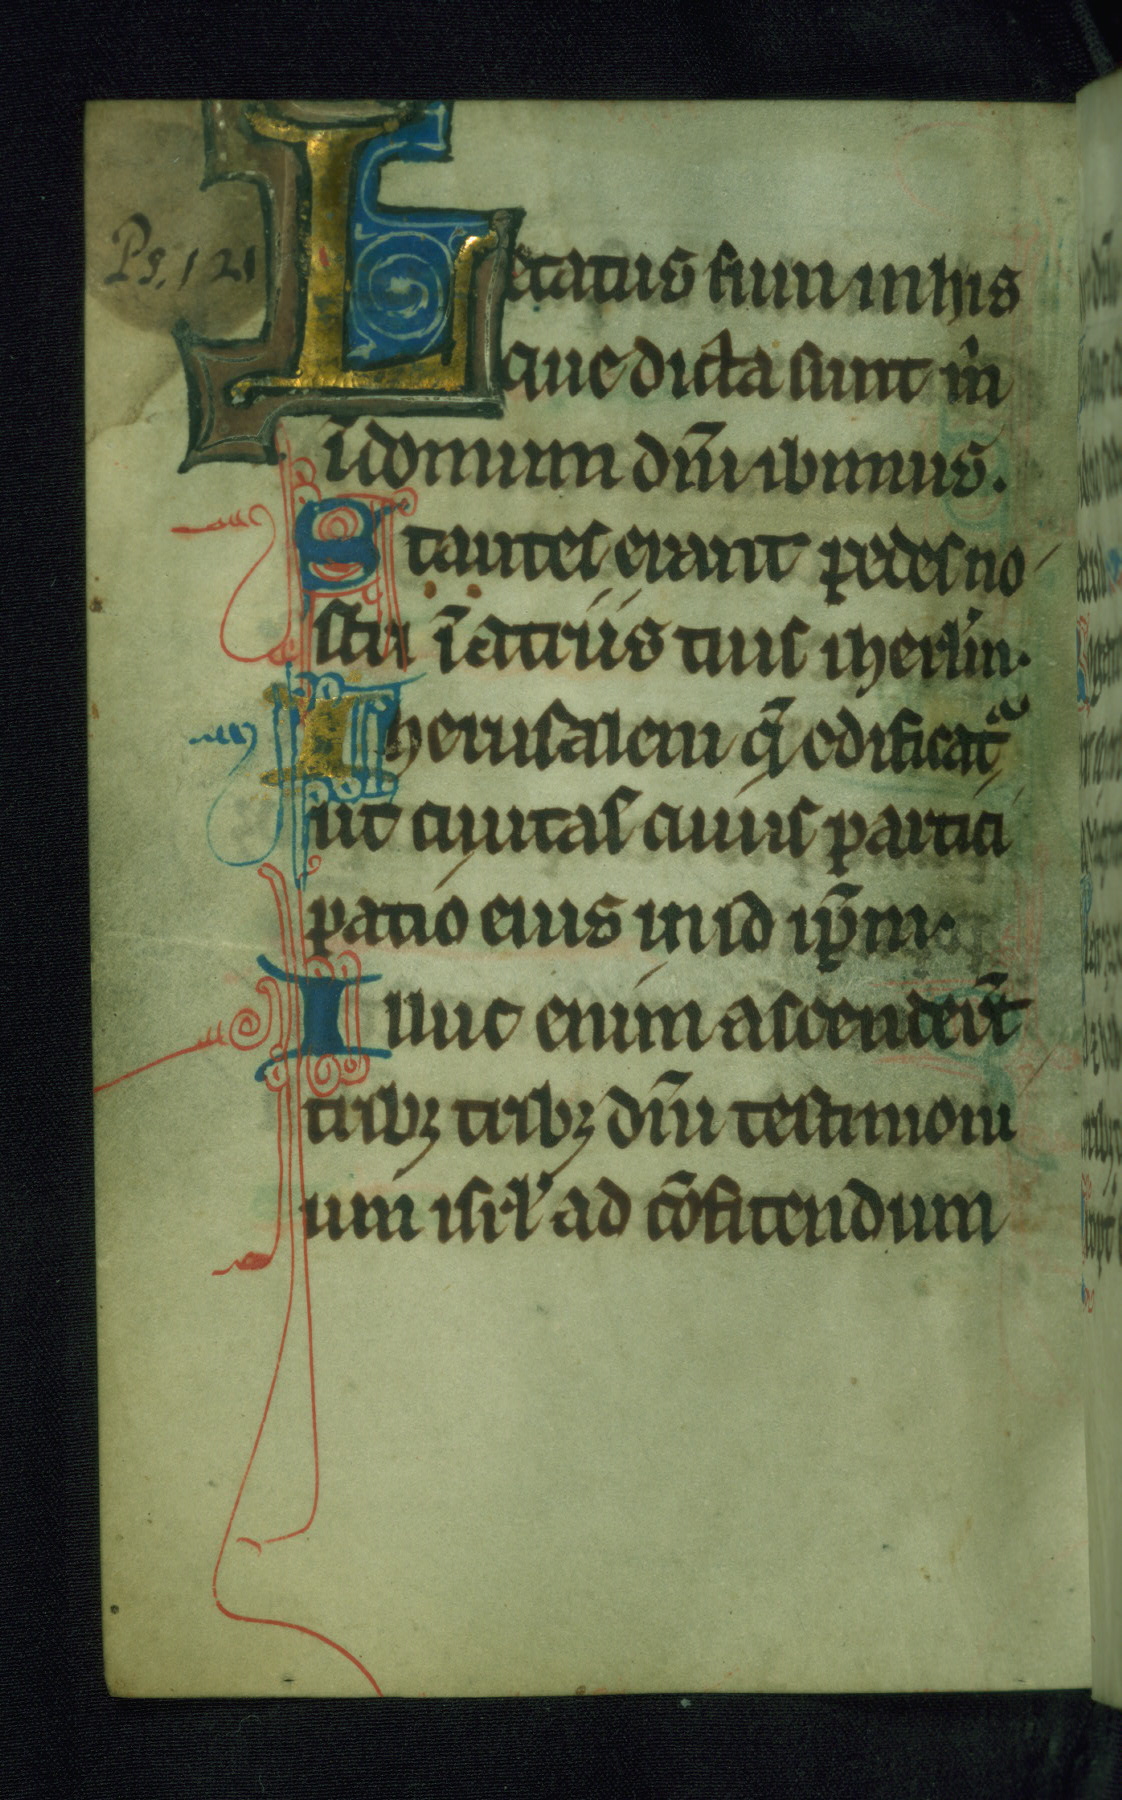 Ps. 121
Letatus sum in his
que dicta sunt m̃
ĩ domum dñi ibimus.
Stantes erant pedes no
stri ĩ atriis tuis iherlm̃.
Iherusalem q̃ edificat᷑
ut ciuitas cuius partici
patio eius in id ip̃m.
Illuc enim ascenderũt
tribꝫ tribꝫ dñi testimoni
um isrl̃ ad cõfitendum